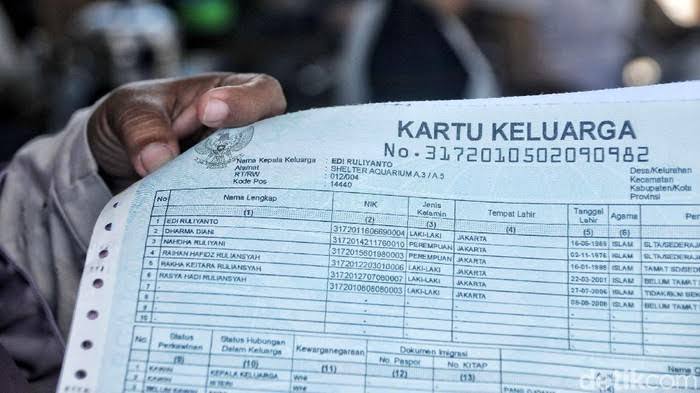 KARTU KELUARGA
No. 3172010502090982
Nama Kepala Keluarga : EDI RULIYANTO
Alamat : SHELTER AQUARIUM A.3 / A.5
RT/RW : 012/004
Kode Pos : 14440
Desa/Kelurahan
Kecamatan
Kabupaten/Kota
Provinsi
No Nama Lengkap NIK Jenis Kelamin Tempat Lahir Tanggal Lahir Agama
(1) (2) (3) (4) (5) (6)
1 EDI RULIYANTO 3172011606690004 LAKI-LAKI JAKARTA 16-06-1969 ISLAM SLTA/SEDERAJA
2 DHARMA DIANI 3172014211760010 PEREMPUAN JAKARTA 02-11-1976 ISLAM SLTA/SEDERA
3 NAHDHA RULIYANI 3172015601980003 PEREMPUAN JAKARTA 16-01-1998 ISLAM TAMAT SD/SEDE
4 RAIHAN HAFIDZ RULIANSYAH 3172012203010006 LAKI-LAKI JAKARTA 22-03-2001 ISLAM BELUM TAMAT
5 RAKHA KEITARA RULIANSYAH 3172012707060007 LAKI-LAKI JAKARTA 27-07-2006 ISLAM TIDAK/BL
6 RASYA HADI RULIANSYAH 3172010808080003 LAKI-LAKI JAKARTA 08-08-2008 ISLAM BELUM TAMAT
No Status Perkawinan Status Hubungan Dalam Keluarga Kewarganegaraan Dokumen Imigrasi
No. Paspor No. KITAP
(9) (10) (11) (12) (13)
KAWIN KEPALA KELUARGA WNI
KAWIN ISTERI WNI
detikcom